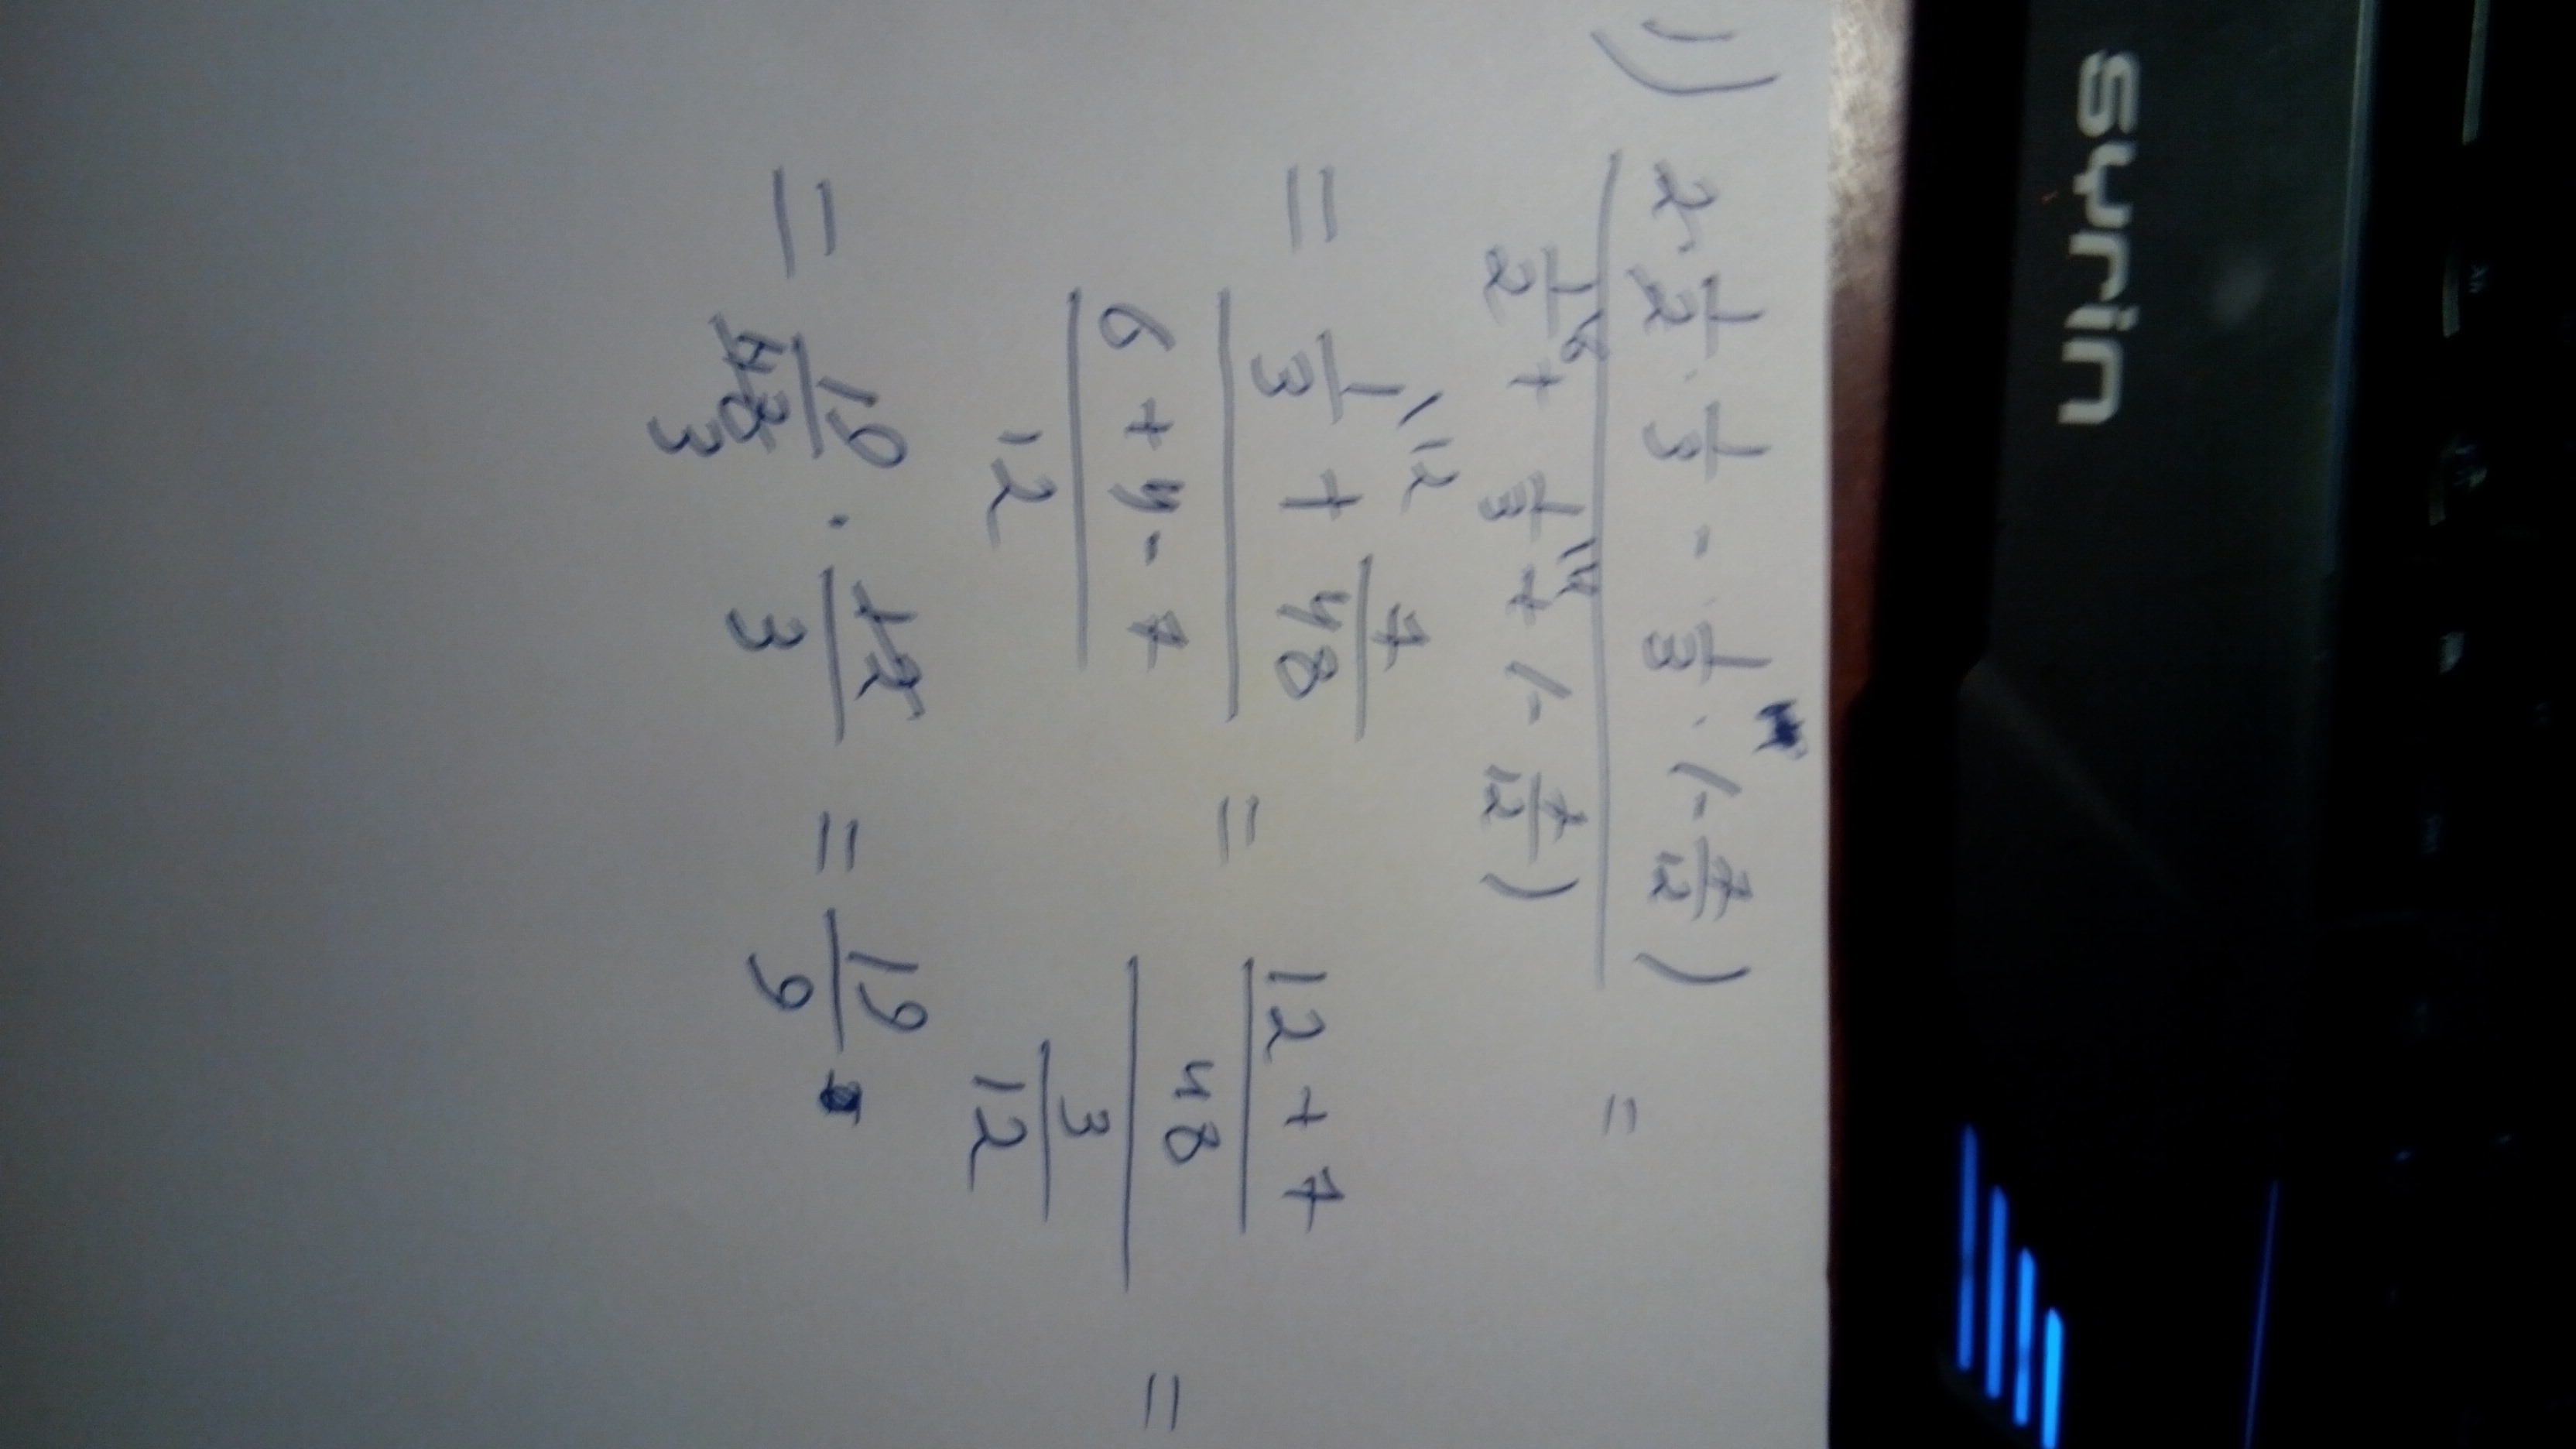 syrin
1) (2·1/2·1/3 - 1/3·(-7/12)) / (1/2\6 + 1/3\4 + (-7/12)) =
= (1/3\12 + 7/48) / ((6+4-7)/12) = ((12+7)/48) / (3/12) =
= 19/48 · 12/3 = 19/9
3